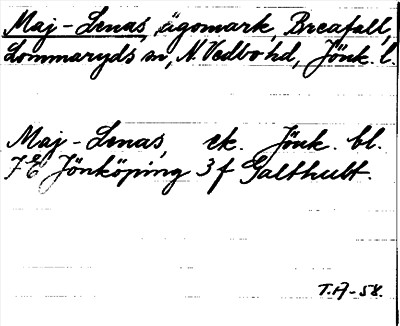 Maj-Lenas, ägomark, Breafall,
Lommaryds sn, N. Vedbo hd, Jönk. l.
Maj-Lenas, ek. Jönk. bl.
7E Jönköping 3f Galthult.
T.A-58.